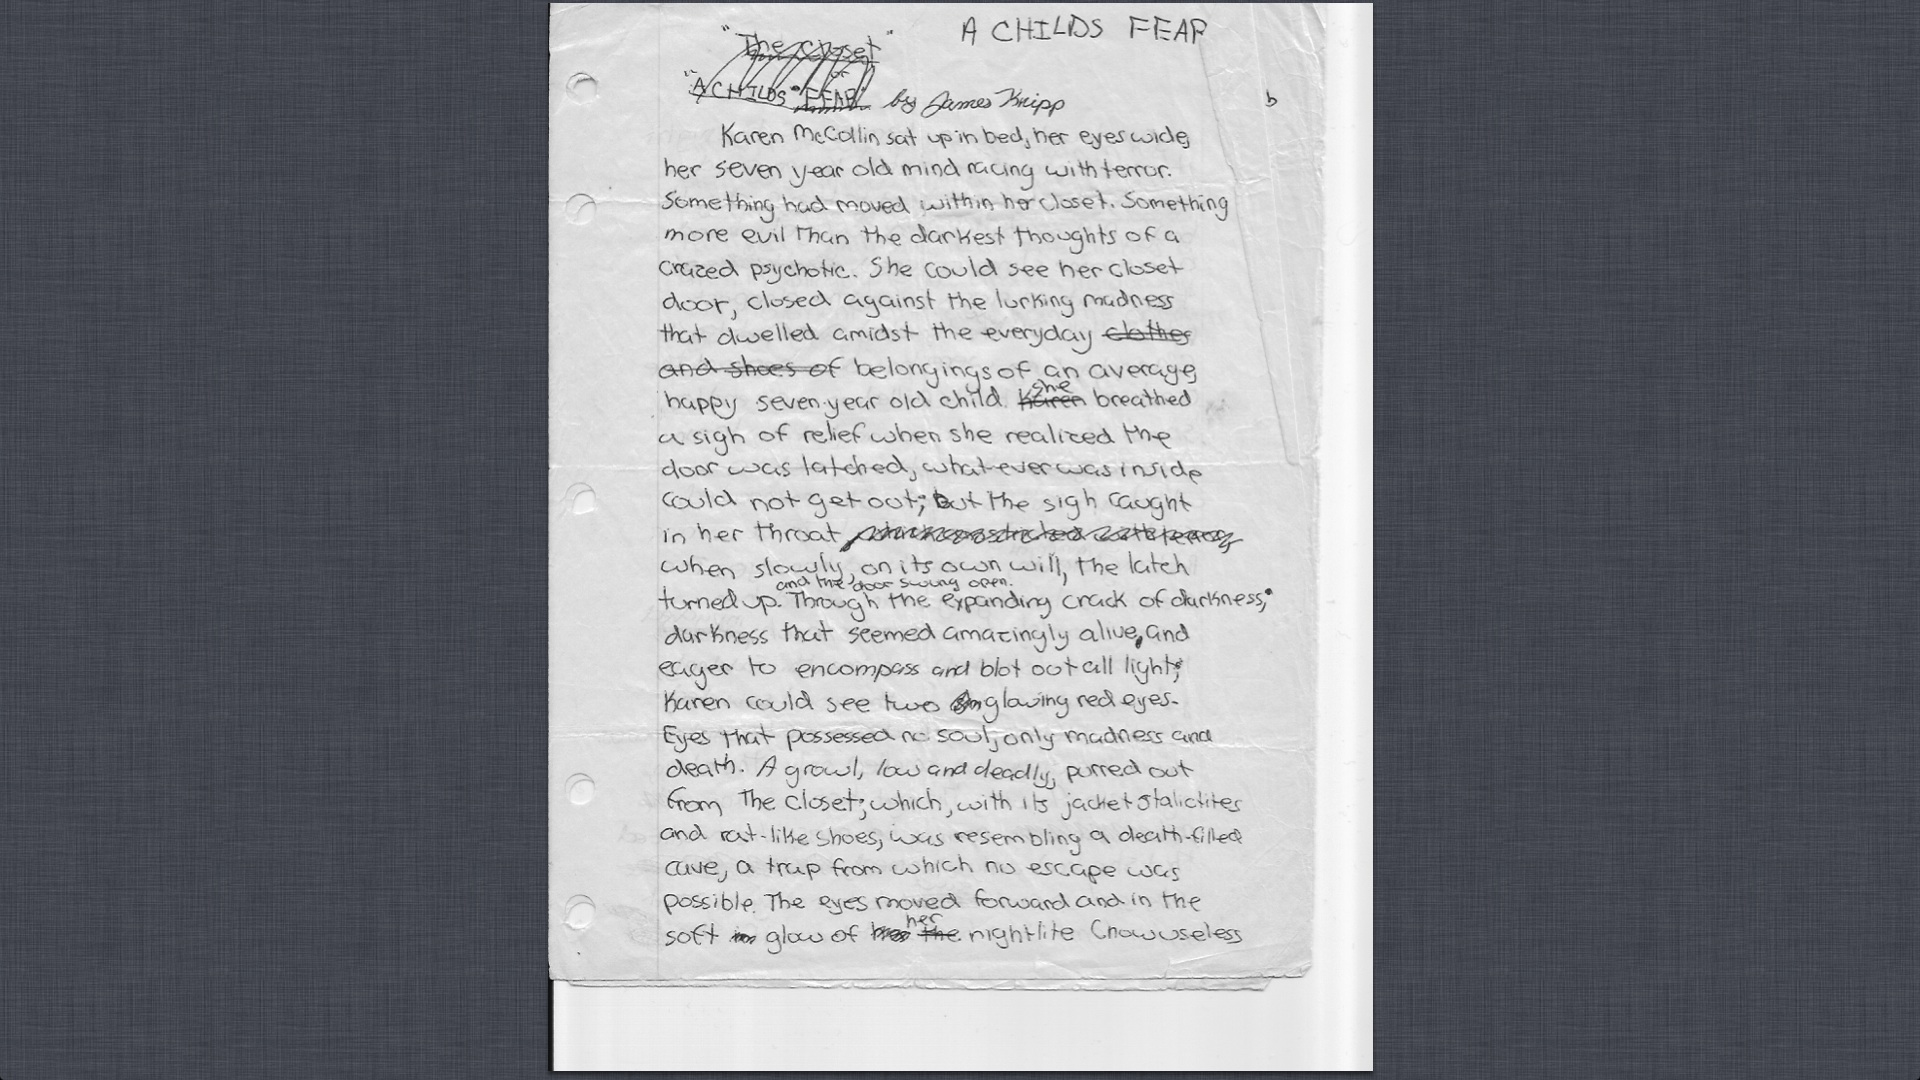 "The Closet" A CHILDS FEAR
or
"A CHILDS" FEAR" by James Knipp
b
Karen McCollin sat up in bed, her eyes wide,
her seven year old mind racing with terror.
Something had moved within her closet. Something
more evil than the darkest thoughts of a
crazed psychotic. She could see her closet
door, closed against the lurking madness
that dwelled amidst the everyday clothes
and shoes of belongings of an average,
she
happy seven year old child. Karen breathed
a sigh of relief when she realized the
door was latched, what-ever was inside
could not get out; but the sigh caught
in her throat
when slowly, on its own will, the latch
and the door swung open.
turned up. Through the expanding crack of darkness;
darkness that seemed amazingly alive, and
eager to encompass and blot out all light;
Karen could see two glowing red eyes.
Eyes that possessed no soul, only madness and
death. A growl, low and deadly, purred out
from the closet; which, with its jacket stalictites
and rat-like shoes, was resembling a death-filled
cave, a trap from which no escape was
possible. The eyes moved forward and in the
her
soft glow of the nightlite (now useless